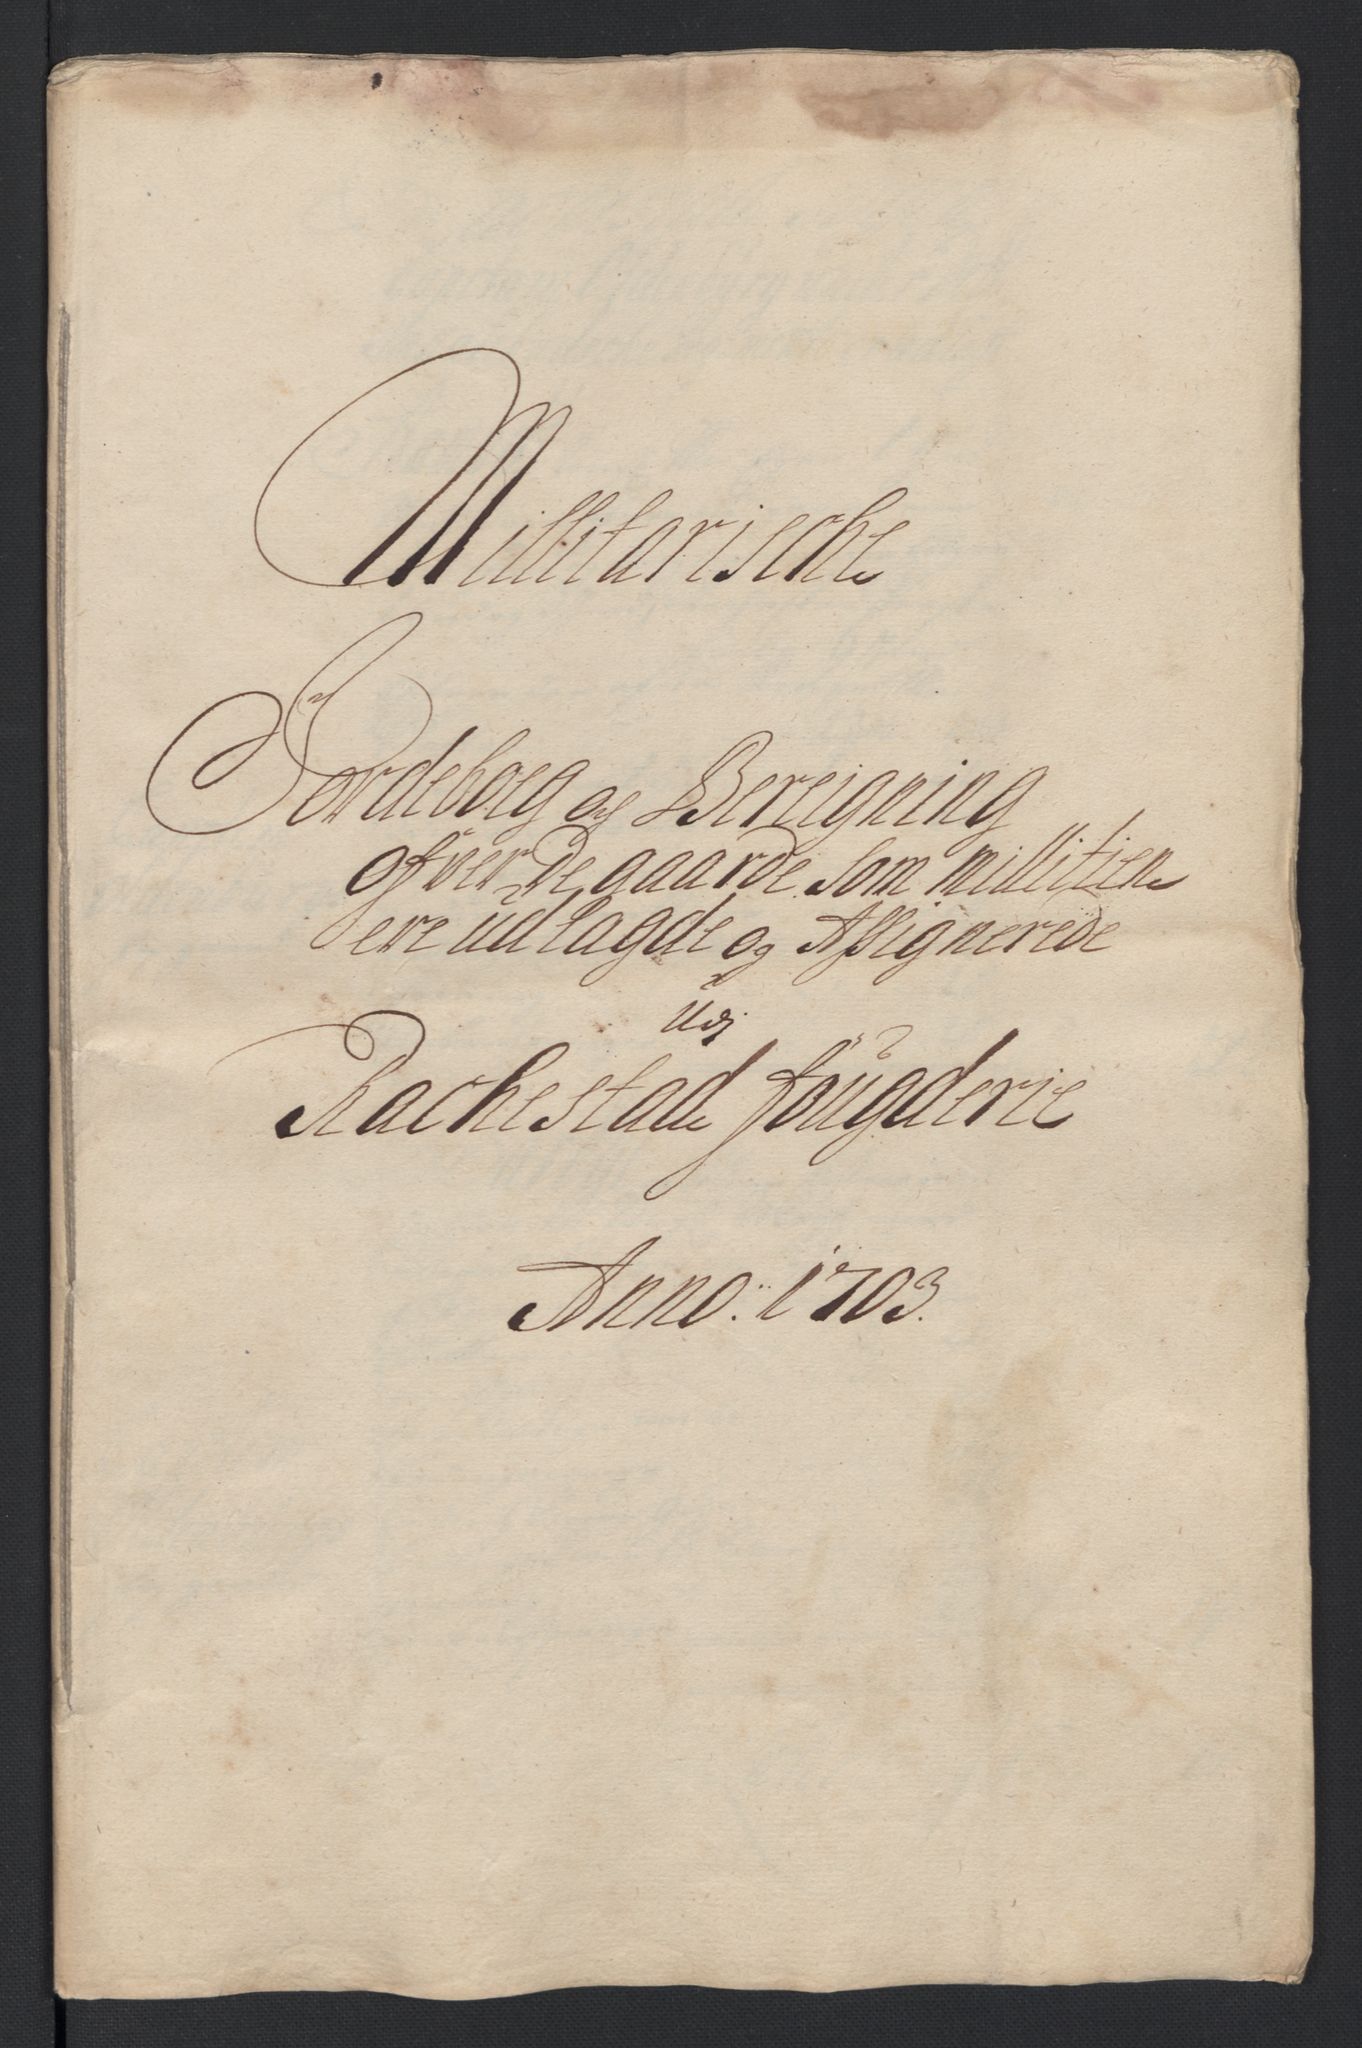 Millitarische
Jordeboeg og Bereigning
ofver De gaarde som millitien
ere udlagde og Assignerede
Udj
Rachestads fougderie
Anno: 1703.